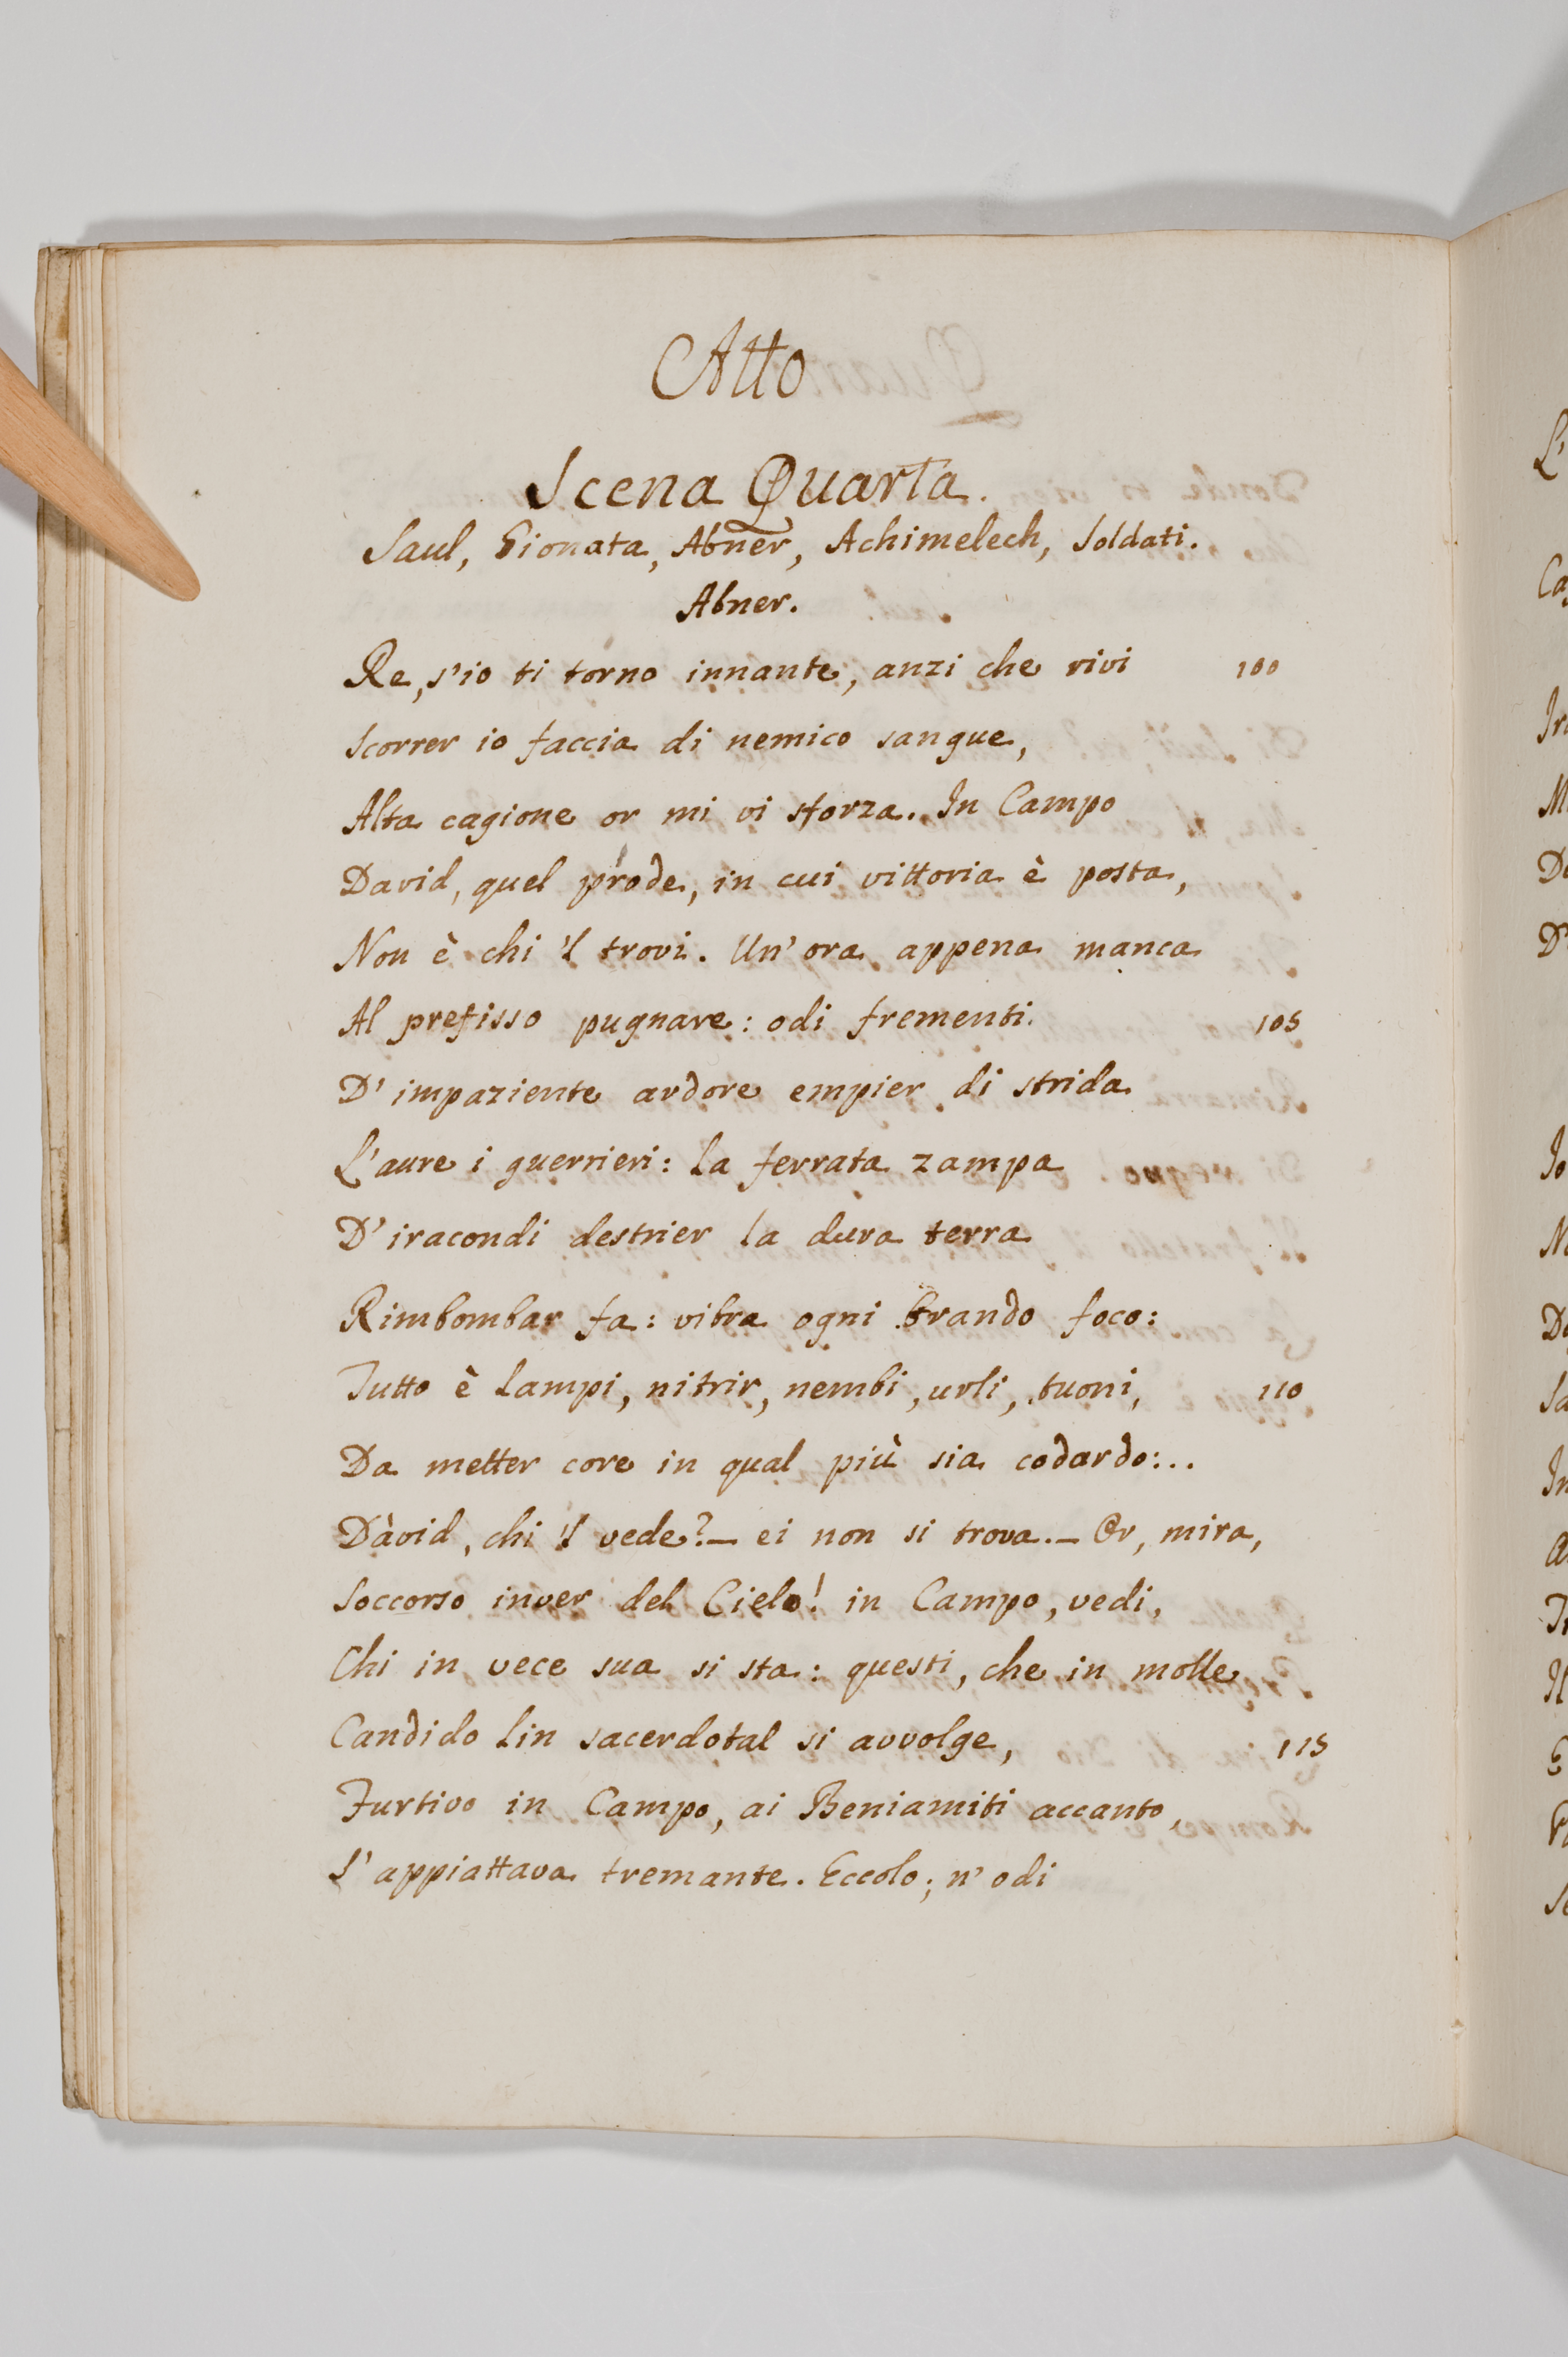 Atto
Scena Quarta.
Saul, Gionata, Abner, Achimelech, Soldati.
Abner.
Re, s'io ti torno innante, anzi che rivi 100
Scorrer io faccia di nemico sangue,
Alta cagione or mi vi sforza. In Campo
David, quel prode, in cui vittoria è posta,
Non è chi 'l trovi. Un' ora appena manca
Al prefisso pugnare: odi frementi 105
D' impaziente ardore empier di strida
L'aure i guerrieri: la ferrata zampa
D' iracondi destrier la dura terra
Rimbombar fa: vibra ogni brando foco:
Tutto è lampi, nitrir, nembi, urli, tuoni, 110
Da metter core in qual più sia codardo:..
Dàvid, chi 'l vede?— ei non si trova.— Or, mira,
Soccorso inver del Cielo! in Campo, vedi,
Chi in vece sua si sta: questi, che in molle
Candido lin sacerdotal si avvolge, 115
Furtivo in Campo, ai Beniamiti accanto,
S' appiattava tremante. Eccolo; n' odi